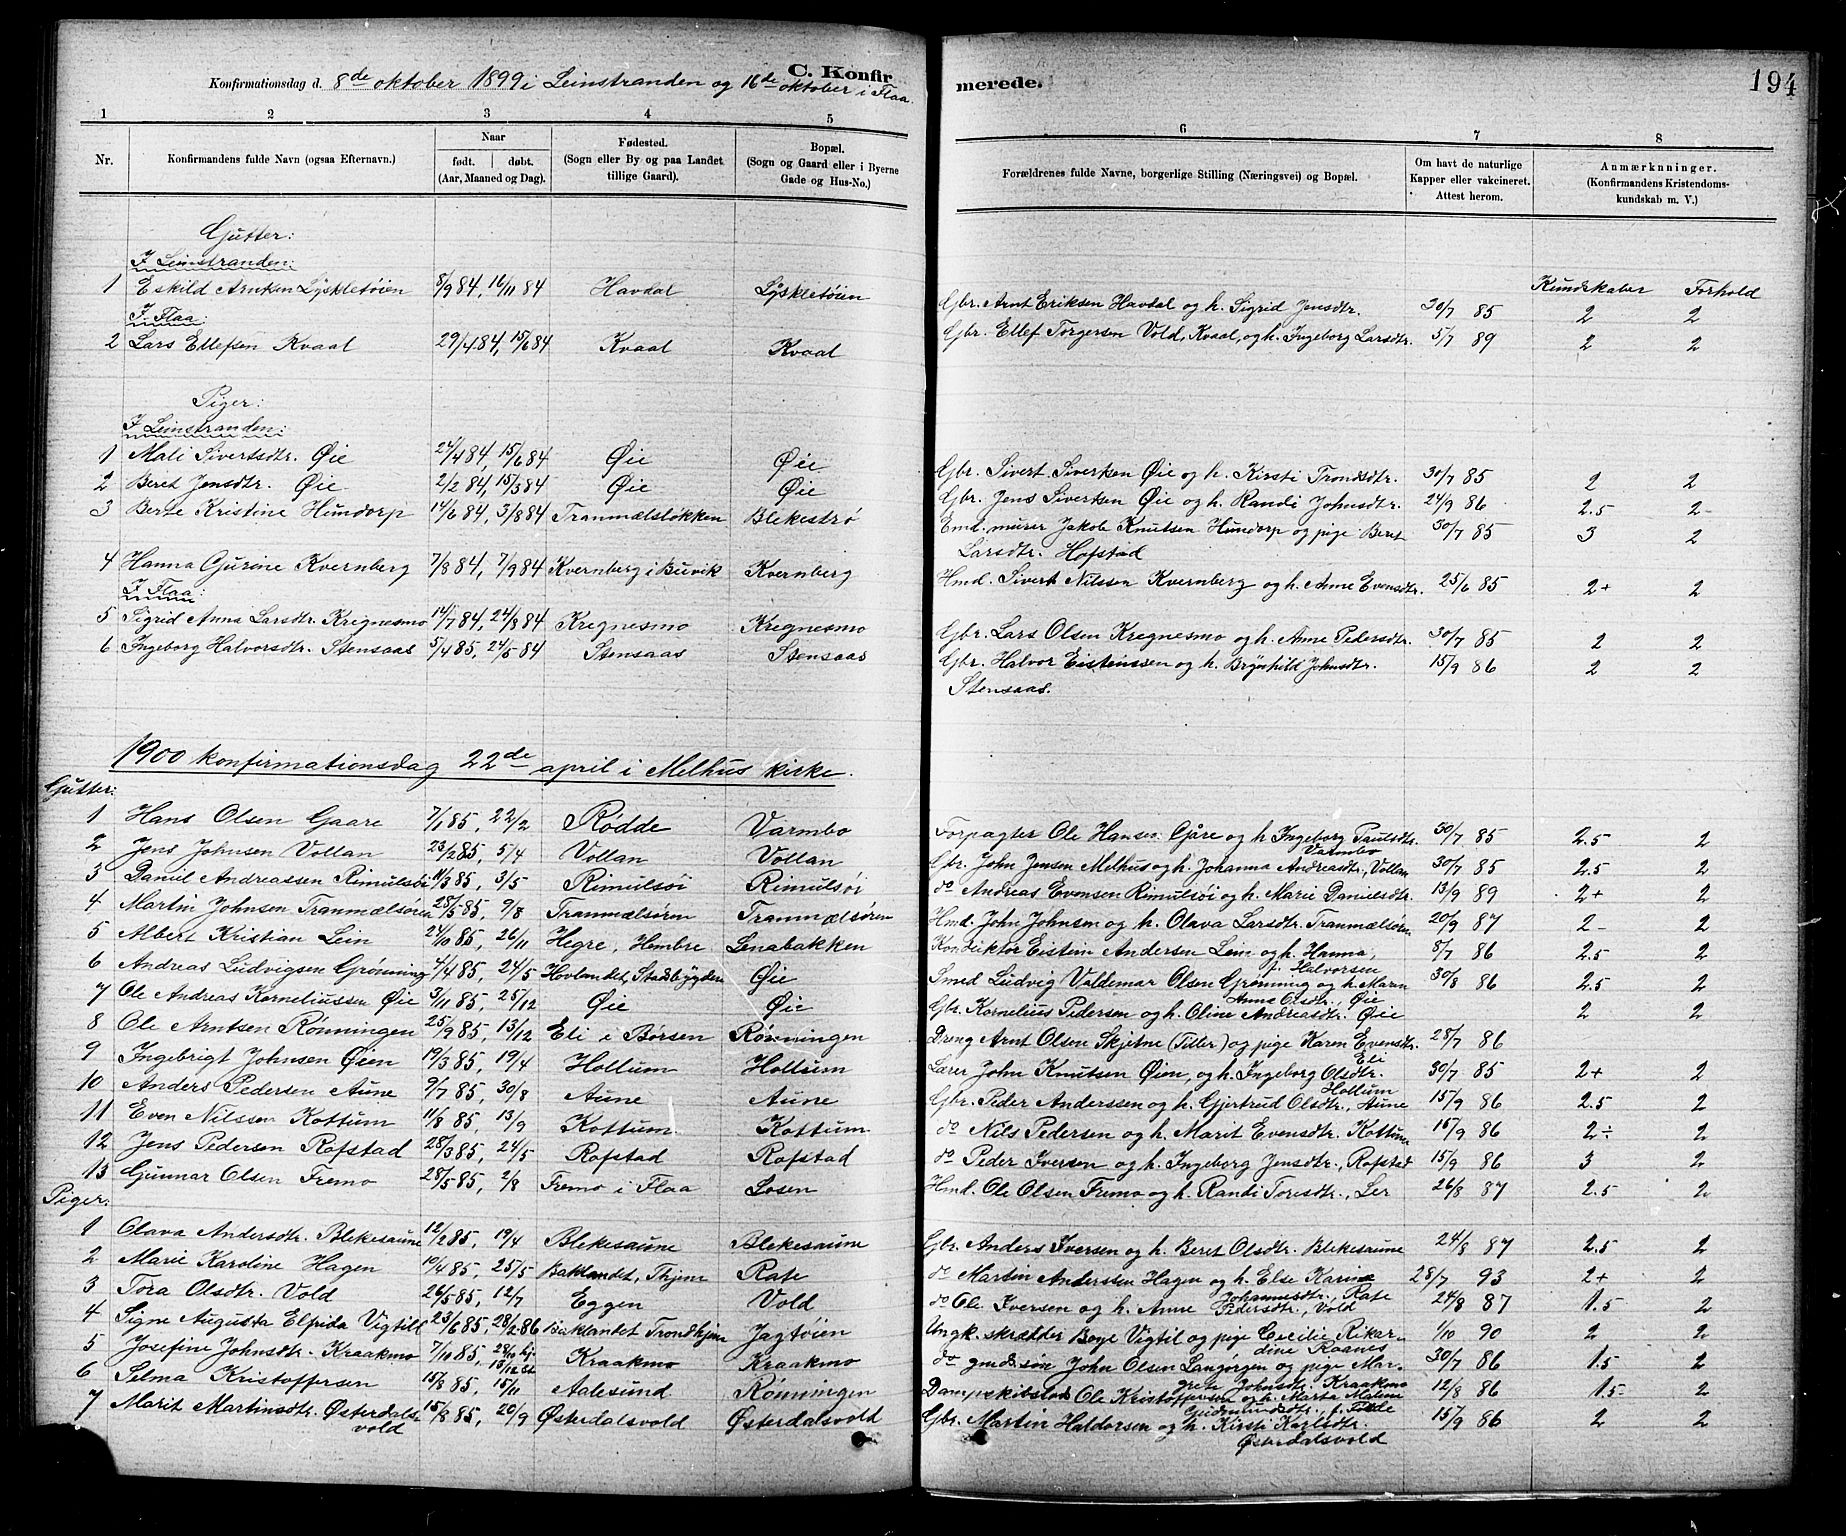 C. Konfirmerede.
194
Konfirmationsdag d. 8de oktober 1899 i Leinstranden og 16de oktober i Flaa.
1 2 3 4 5 6 7 8
Nr.
Konfirmandens fulde Navn (ogsaa Efternavn.)
Naar
født. døbt.
(Aar, Maaned og Dag).
Fødested.
(Sogn eller By og paa Landet
tillige Gaard).
Bopæl.
(Sogn og Gaard eller i Byerne
Gade og Hus-No.)
Forældrenes fulde Navne, borgerlige Stilling (Næringsvei) og Bopæl.
Om havt de naturlige
Kapper eller vakcineret.
Attest herom.
Anmærkninger.
(Konfirmandens Kristendoms-
kundskab m. V.)
Gutter:
I Leinstranden: Kundskaber Forhold
1 Eskild Arntsen Lÿskletøien 8/9 84, 16/11 84 Havdal Lÿskletøien Gbr. Arnt Eriksen Havdal og h. Sigrid Jensdtr. 30/7 85 2 2
I Flaa:
2 Lars Ellefsen Kvaal 29/4 84, 15/6 84 Kvaal Kvaal Gbr. Ellef Torgersen Vold, Kvaal, og h. Ingeborg Larsdtr. 5/7 89 2 2
Piger:
I Leinstranden:
1 Mali Sivertsdtr. Øie 24/4 84, 15/6 84 Øie Øie Gbr. Sivert Sivertsen Øie og h. Kirsti Trondsdtr. 30/7 85 2 2
2 Beret Jensdtr. Øie 2/2 84, 15/3 84 Øie Øie Gbr. Jens Sivertsen Øie og h. Randi Johnsdtr. 24/9 86 2.5 2-
3 Berte Kristine Hundorp 14/6 84, 3/8 84 Tranmælsløkken Blekestrø Emd. murer Jakob Knutsen Hundorp og pige Beret 30/7 85 3 2
Larsdtr. Hofstad
4 Hanna Gurine Kvernberg 7/8 84, 7/9 84 Kvernberg i Buvik Kvernberg Hmd. Sivert Nilssen Kvernberg og h. Anne Evensdtr. 25/6 85 2+ 2
I Flaa:
5 Sigrid Anna Larsdtr. Kregnesmo 14/7 84, 24/8 84 Kregnesmo Kregnesmo Gbr. Lars Olsen Kregnesmo og h. Anne Pedersdtr. 30/7 85 2 2
6 Ingeborg Halvorsdtr. Stensaas 5/4 85, 24/5 84 Stensaas Stensaas Gbr. Halvor Eistenssen og h. Brynhild Johnsdtr. 15/9 86 2 2
Stensaas.
1900 konfirmationsdag 22de april i Melhus kirke.
Gutter:
1 Hans Olsen Gaare 7/1 85, 22/2 Rødde Varmbo Forpagter Ole Hansen Gåre og h. Ingeborg Paulsdtr. 30/7 85 2.5 2
Varmbo
2 Jens Johnsen Vollan 23/2 85, 5/4 Vollan Vollan Gbr. John Jensen Melhus og h. Johanna Andreasdtr., Vollan 30/7 85 2.5 2
3 Daniel Andreassen Rimulsøi 11/3 85, 3/5 Rimulsøi Rimulsøi do Andreas Evensen Rimulsøi og h. Marie Danielsdtr. 13/9 89 2+ 2
4 Martin Johnsen Tranmælsøren 28/5 85, 9/8 Tranmælsøren Tranmælsøren Hmd. John Johnsen og h. Olava Larsdtr. Tranmælsøren 20/9 87 2- 2
5 Albert Kristian Lein 24/10 85, 26/11 Hegre, Hembre Lenabakken Konduktør Eistein Andersen Lein og h. Hanna, 8/7 86 2.5 2
f. Halvorsen
6 Andreas Ludvigsen Grønning 4/4 85, 24/5 Hovlandet, Stadsbygden Øie Smed Ludvig Valdemar Olsen Grønning og h. Maren 30/8 86 2.5 2
Anna Olsdtr., Øie
7 Ole Andreas Korneliussen Øie 3/11 85, 25/12 Øie Øie Gbr. Kornelius Pedersen og h. Oline Andreasdtr. Øie 2 2
8 Ole Arntsen Rønningen 25/9 85, 13/12 Eli i Børsen Rønningen Dreng Arnt Olsen Skjetne (Tiller) og pige Karen Evensdtr. 28/7 86
Eli
9 Ingebrigt Johnsen Øien 19/3 85, 19/4 Hollum Hollum Lærer John Knutsen Øien, og h. Ingeborg Olsdtr. 30/7 85 2+ 2
Hollum
10 Anders Pedersen Aune 9/7 85, 30/8 Aune Aune Gbr. Peder Anderssen og h. Gjertrud Olsdtr., Aune 15/9 86 2.5 2
11 Even Nilssen Kottum 11/8 85, 13/9 Kottum Kottum do Nils Pedersen og h. Marit Evensdtr. Kottum 15/9 86 2÷ 2
12 Jens Pedersen Rofstad 28/3 85, 24/5 Rofstad Rofstad do Peder Iversen og h. Ingeborg Jensdtr., Rofstad 15/9 86 3 2
13 Gunnar Olsen Fremo 28/5 85, 2/8 Fremo i Flaa Losen Hmd. Ole Olsen Fremo og h. Randi Toresdtr., Ler 26/8 87 2.5 2
Piger:
1 Olava Andersdtr. Blekesaune 12/2 85, 19/4 Blekesaune Blekesaune Gbr. Anders Iversen og h. Beret Olsdtr. Blekesaune 24/8 87 2.5 2
2 Marie Karoline Hagen 10/4 85, 25/5 Baklandet, Thjem Rate do Martin Anderssen Hagen og h. Else Karine 28/7 93 2+ 2
Johannesdtr., Rate
3 Tora Olsdtr. Vold 26/5 85, 12/7 Eggen Vold do Ole Iversen og h. Anne Pedersdtr., Vold 24/8 87 1.5 2
4 Signe Augusta Elfrida Vigtil 23/6 85, 28/2 86 Baklandet Trondhjem Jagtøien Ungk. skrædder Boye Vigtil og pige Cecilie Rikar- 1/10 90 2 2
dine Raanes
5 Josefine Johnsdtr. Kraakmo 7/10 85, Kraakmo Kraakmo do gmdsøn John Olsen Langørgen og pige Mar- 30/7 86 1.5 2
grete Johnsdtr. Kraakmo
6 Selma Kristoffersen 15/8 85, 15/11 Aalesund Rønningen Ole Kristoffersen og h. Marta Malene 12/8 86 1.5 2
7 Marit Martinsdtr. Østerdals- 15/8 85, 20/9 Østerdalsvold Østerdalsvold Gbr. Martin Haldorsen og h. Kirsti Karlsdtr. 15/9 86 2 2
vold Østerdalsvold